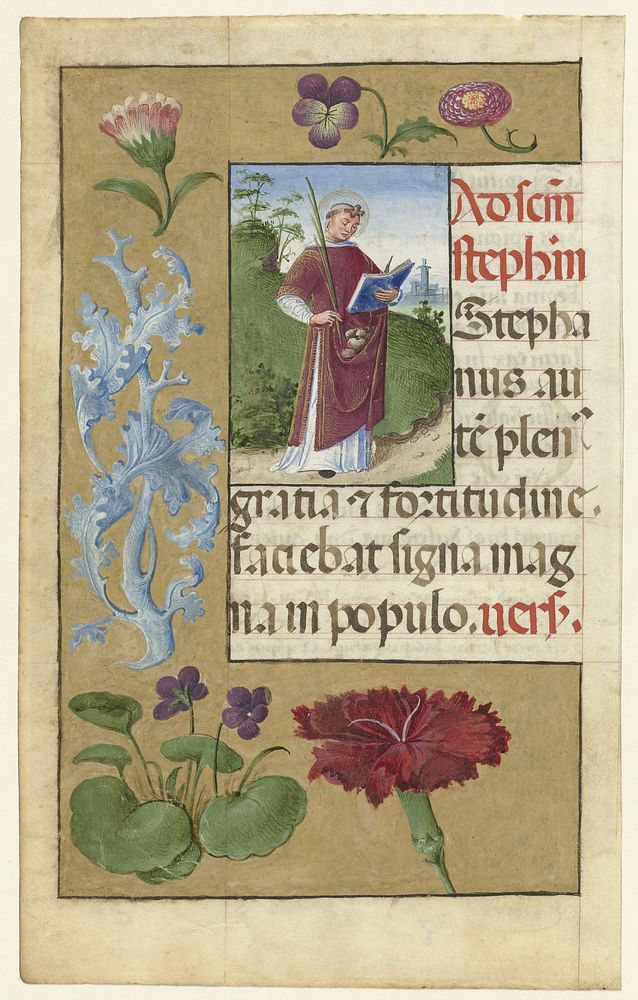 Ad scm̄
stephm̄
Stepha
nus au
tē plen⁹
gratia ⁊ fortitudine.
faciebat signa mag
na in populo. vers̄.